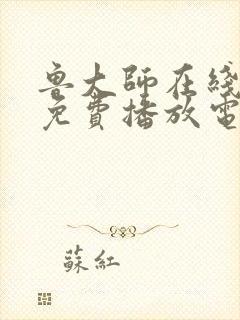 鲁大師在綫
免費播放電
蘇紅